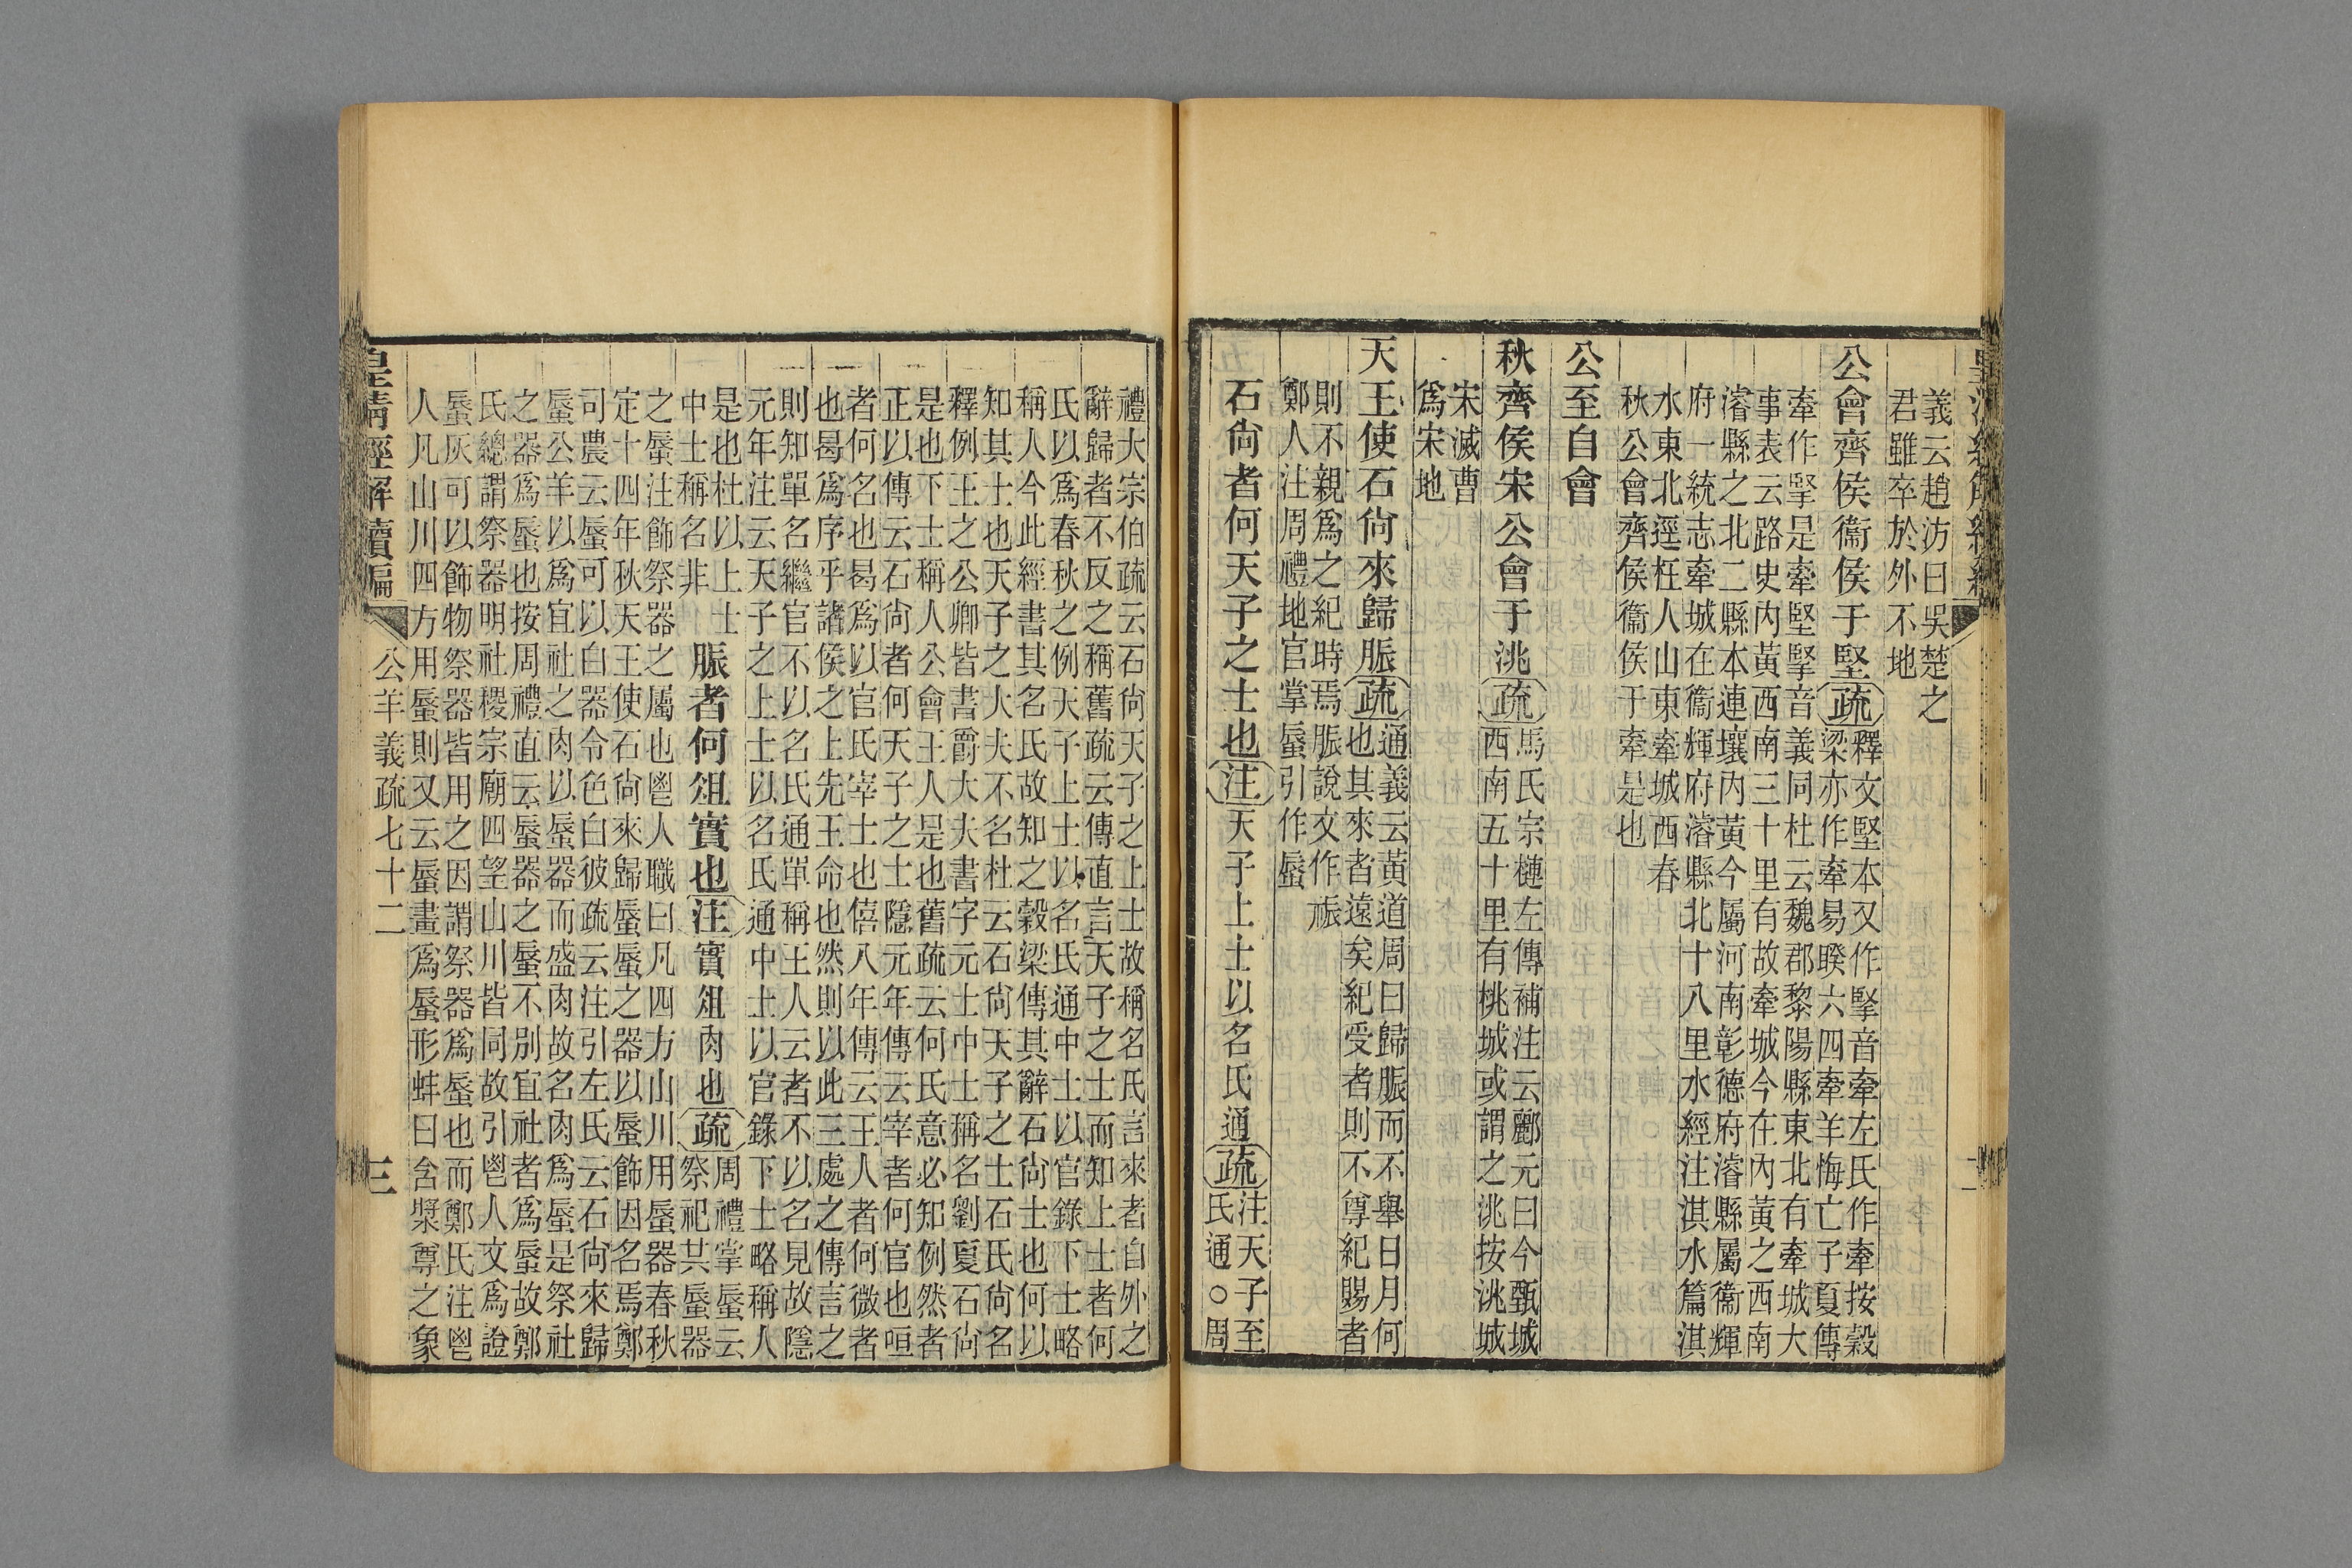 義云趙汸曰吳楚之
君雖卒於外不地
公會齊侯衞侯于堅疏
釋文堅本又作掔音牽左氏作牽按穀
梁亦作牽易睽六四牽羊悔亡子夏傳
牽作掔是牽堅掔音義同杜云魏郡黎陽縣東北有牽城大
事表云路史內黃西南三十里有故牽城今在內黃之西南
濬縣之北二縣本連壤內黃今屬河南彰德府濬縣屬衞輝
府一統志牽城在衞輝府濬縣北十八里水經注淇水篇淇
水東北逕枉人山東牽城西春
秋公會齊侯衞侯于牽是也
公至自會
秋齊侯宋公會于洮疏
馬氏宗槤左傳補注云酈元曰今甄城
西南五十里有桃城或謂之洮按洮城
宋滅曹
爲宋地
天王使石尙來歸脤疏
通義云黃道周曰歸脤而不舉日月何
也其來者遠矣紀受者則不尊紀賜者
則不親爲之紀時焉脤說文作祳
鄭人注周禮地官掌蜃引作蜃
石尙者何天子之士也注天子上士以名氏通疏
注天子至
氏通○周
禮大宗伯疏云石尙天子之上士故稱名氏言來者自外之
辭歸者不反之稱舊疏云傳直言天子之士而知上士者何
氏以爲春秋之例天子上士以名氏通中士以官錄下士略
稱人今此經書其名氏故知之穀梁傳其辭石尙士也何以
知其士也天子之大夫不名杜云石尙天子之士石氏尙名
釋例王之公卿皆書爵大夫書字元士中士稱名劉夏石尙
是也下士稱人公會王人是也舊疏云何氏意必知例然者
正以傳云石尙者何天子之士隱元年傳云宰者何官也咺
者何名也曷爲以官氏宰士也僖八年傳云王人者何微者
也曷爲序乎諸侯之上先王命也然則以此三處之傳言之
則知單名繼官不以名氏通單稱王人云者不以名見故隱
元年注云天子之上士以名氏通中士以官錄下士略稱人
是也杜以上士
中士稱名非
脤者何俎實也注實俎肉也疏
周禮掌蜃云
祭祀共蜃器
之蜃注飾祭器之屬也鬯人職曰凡四方山川用蜃器春秋
定十四年秋天王使石尙來歸蜃蜃之器以蜃飾因名焉鄭
司農云蜃可以白器令色白彼疏云注引左氏云石尙來歸
蜃公羊以爲宜社之肉以蜃器而盛肉故名肉爲蜃是祭社
之器爲蜃也按周禮直云蜃器之蜃不別宜社者爲蜃故鄭
氏總謂祭器明社稷宗廟四望山川皆同故引鬯人文爲證
蜃灰可以飾物祭器皆用之因謂祭器爲蜃也而鄭氏注鬯
人凡山川四方用蜃則又云蜃畫爲蜃形蚌曰含漿尊之象
皇清經解續編
公羊義疏七十二
三